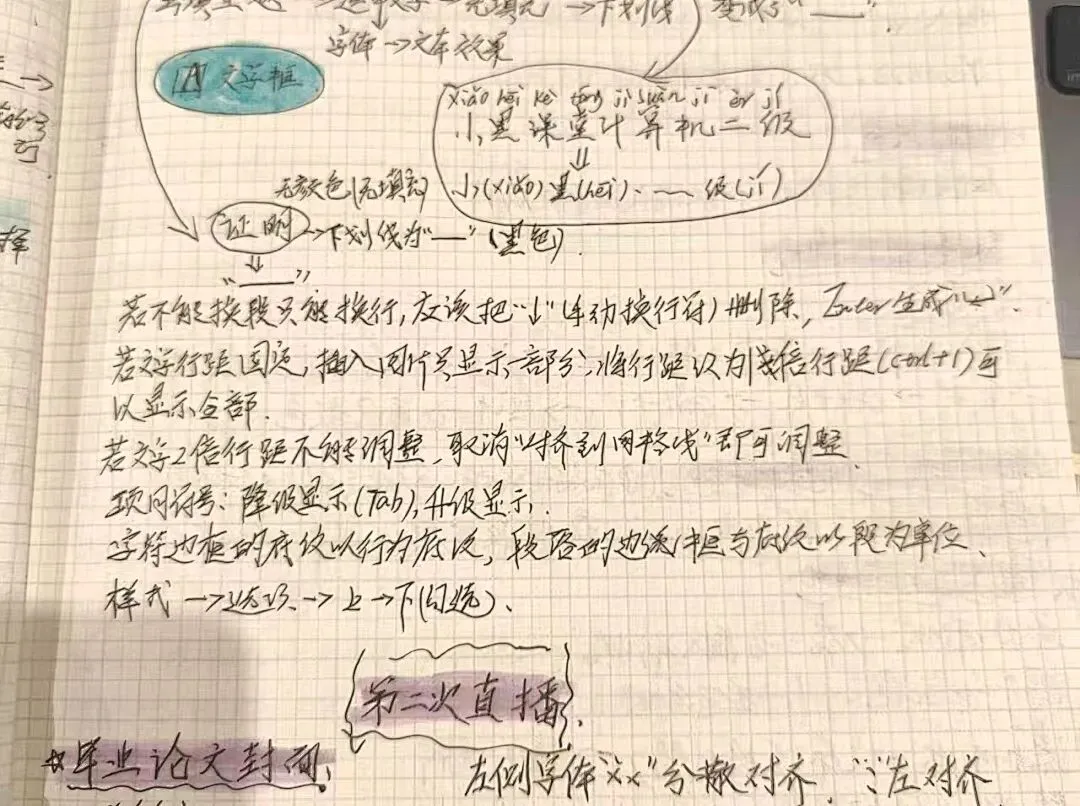 无填充 → 下划线 变成了"__"
字体 → 文本效果
A 文字框
xiǎo hēi kè táng jì suàn jī èr jí
小黑课堂计算机二级
⇓
小(xiǎo)黑(hēi)、…… 级(jí)
无颜色(无填充)
证明 → 下划线为"__"(黑色)
⇓
"____"
若不能换段只能换行,应该把"↓"(手动换行符)删除,Enter生成"↵"。
若文字行距固定,插入图片只显示一部分,将行距设为1倍行距(ctrl+1)可
以显示全部.
若文字2倍行距不能调整,取消"对齐到网格线"即可调整.
项目符号:降级显示(Tab),升级显示.
字符边框的底纹以行为底纹,段落的边框与底纹以段为单位、
样式 → 选项 → 上 → 下(勾选)、
第二次直播.
☆毕业论文封面、
左侧字体"××"分散对齐. ":"左对齐
择